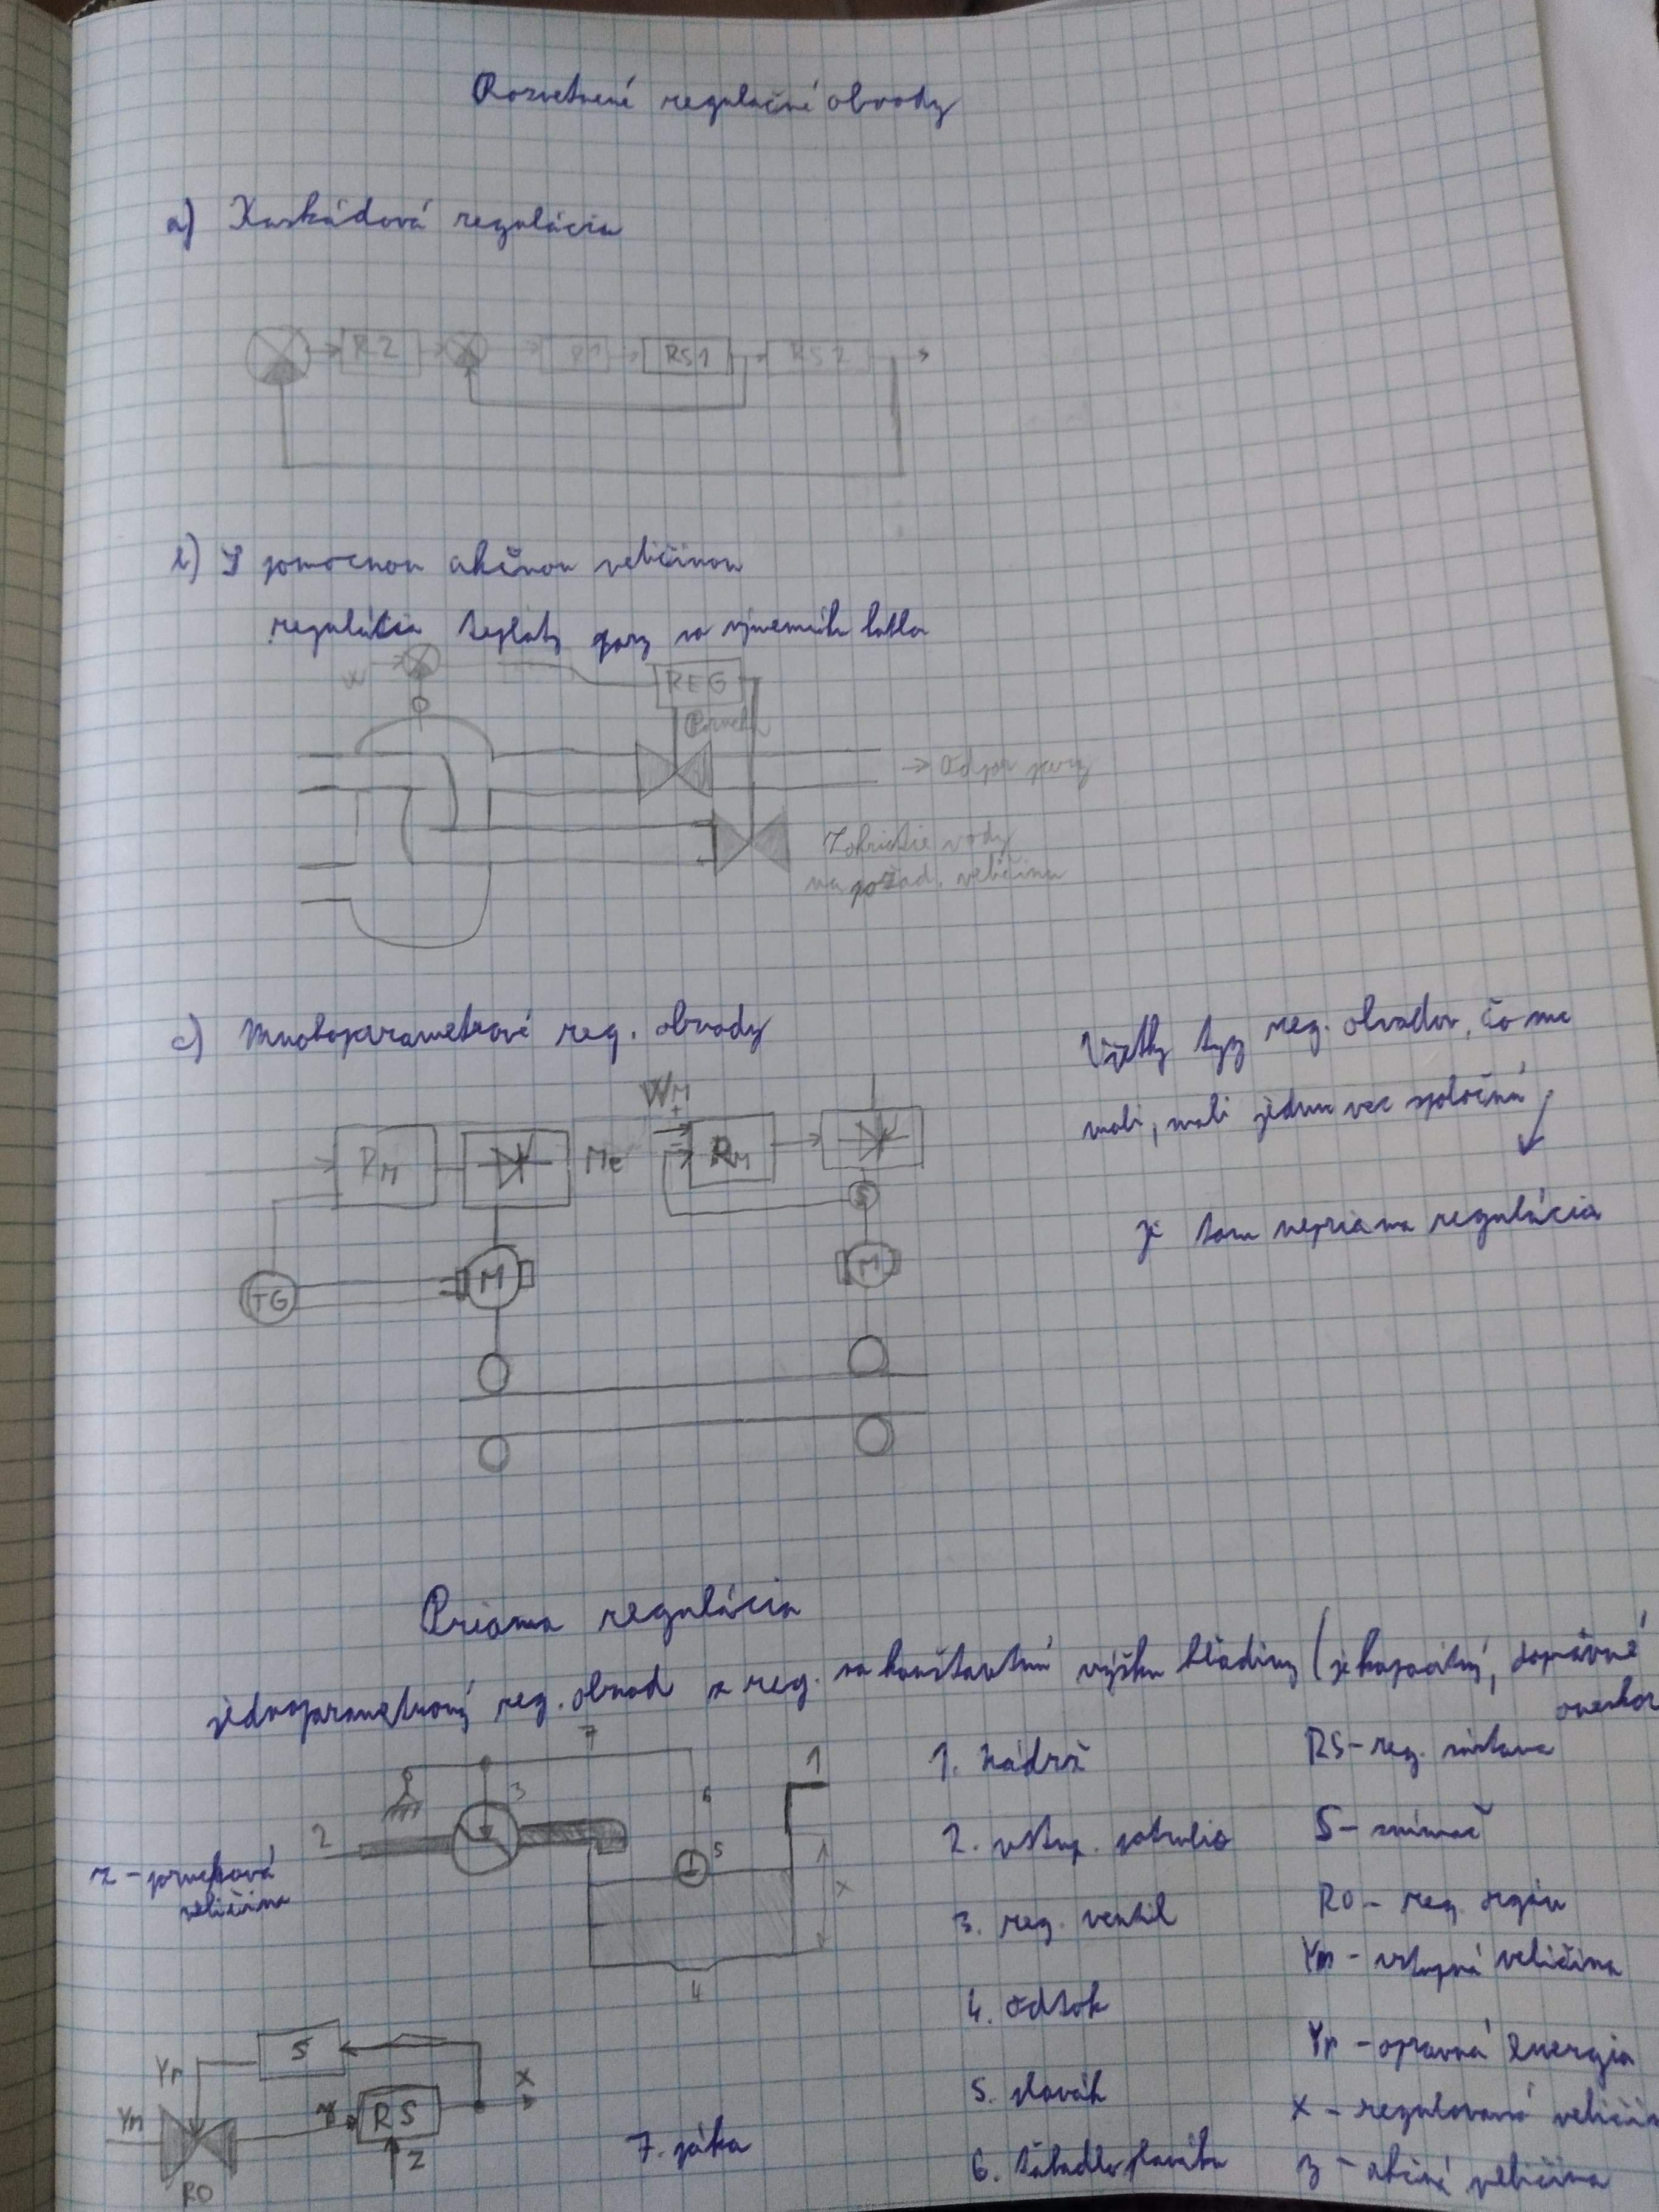 Rozvetvené regulačné obvody
a) Kaskádová regulácia
R2 R1 RS1 RS2
b) S pomocnou akčnou veličinou
regulácia teploty pary vo výmenníku kotla
w REG
Porucha
→ Odpar pary
Zohriatie vody
na požad. veličinu
c) Mnohoparametrové reg. obvody
Všetky typy reg. obvodov, čo sme
mali, mali jednu vec spoločnú
je tam nepriama regulácia
WM
+
-
RM Me RM
S
TG M M
Priama regulácia
jednoparametrový reg. obvod s reg. na konštantnú výšku hladiny (je kapacitný, dopravné
oneskor
7
1
3
6
2
5
x
4
z - poruchová
veličina
1. nádrž
2. vstup. potrubie
3. reg. ventil
4. odtok
5. plavák
6. tiahadlo plaváku
7. páka
RS - reg. sústava
S - snímač
RO - reg. orgán
Ym - vstupná veličina
Yr - opravná energia
x - regulovaná
y - akčná veličina
S
Yr
x
Ym y RS
z
RO